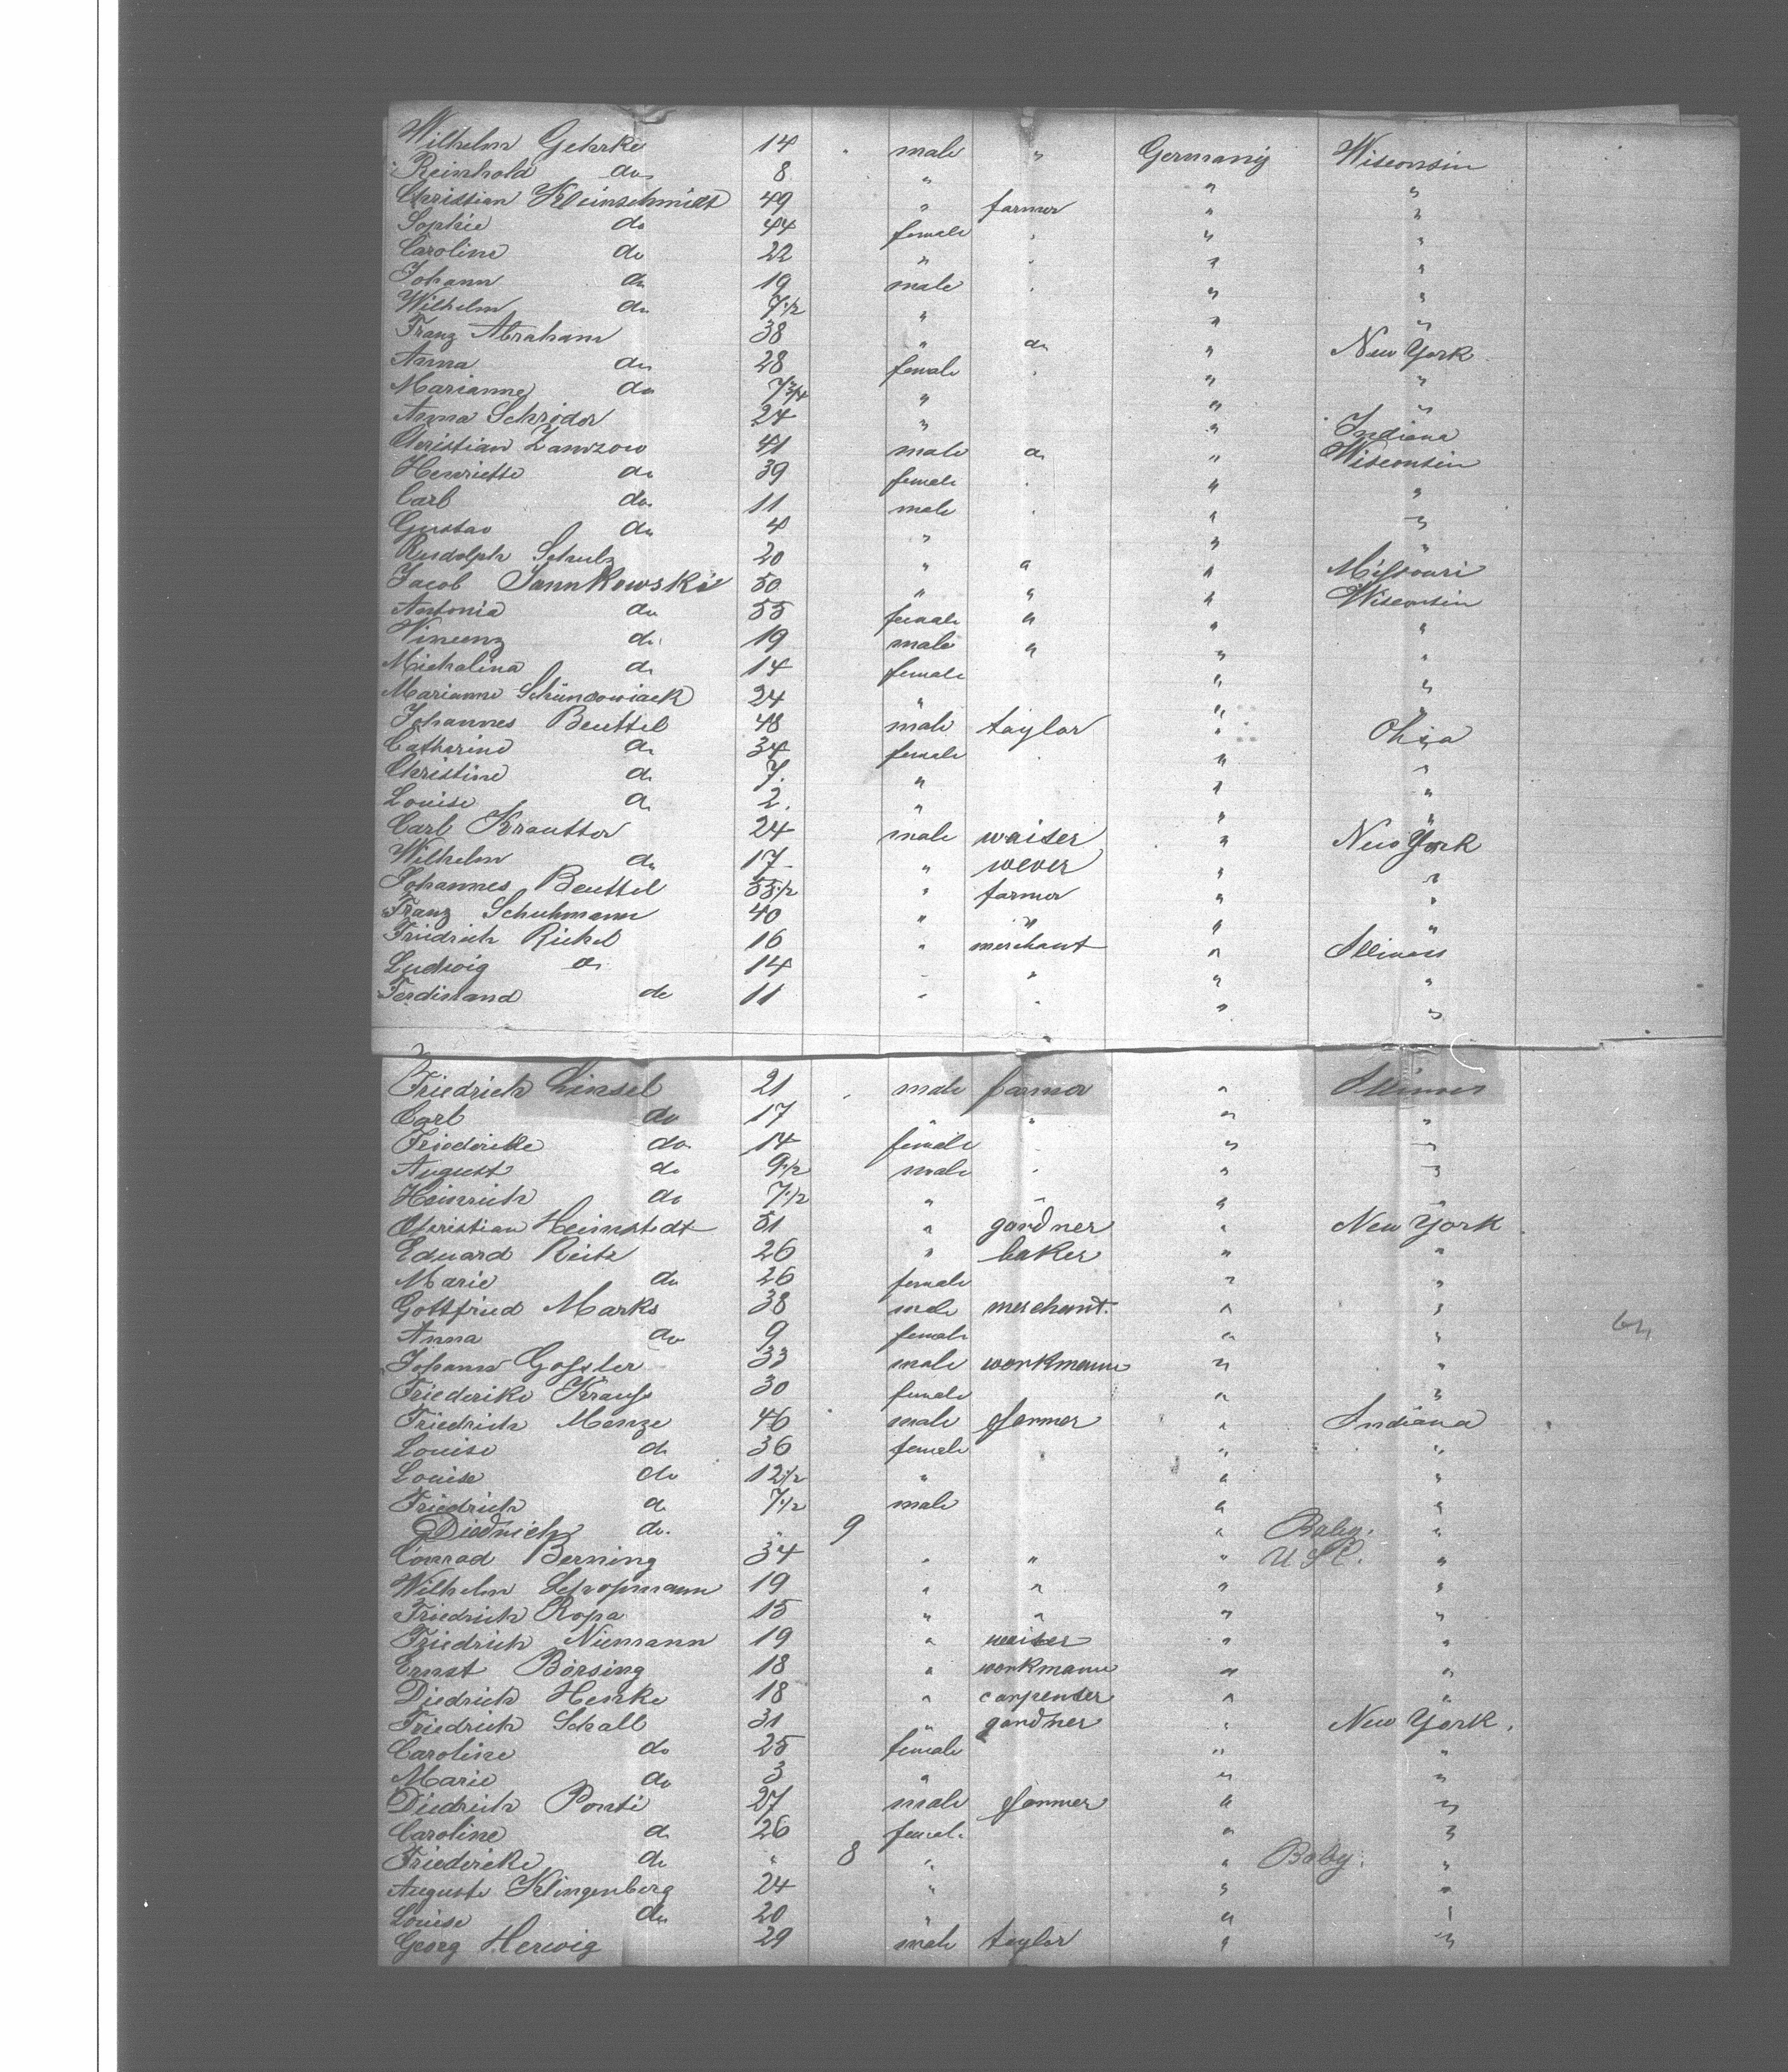 Wilhelm Gehrke 14 male " Germany Wisconsin
Reinhold do 8 " " "
Christian Kleinschmidt 49 " farmer " "
Sophie do 44 female " "
Caroline do 22 " " "
Johann do 19 male " "
Wilhelm do 7 1/2 " " "
Franz Abraham 38 " do " New York
Anna do 28 female " "
Marianne do 7 3/4 " " "
Anna Schröder 24 " " Indiana
Christian 41 male do " Wisconsin
Henriette do 39 female " "
Carl do 11 male " "
Gustav do 4 " " "
Rudolph Schulz 20 " " " Missouri
Jacob Jannkowski 50 " " " Wisconsin
Antonia do 55 female " " "
Vincenz do 19 male " " "
Michalina do 14 female " "
Marianne 24 " " "
Johannes Beuttel 48 male taylor " Ohio
Catharine do 34 female " "
Christine do 7 " " "
Louise do 2 " " "
Carl Krautter 24 male waiter " New York
Wilhelm do 17 " wever " "
Johannes Beuttel 53 1/2 " farmer " "
Franz Schuhmann 40 " " " "
Friedrich Rickel 16 " merchant " Illinois
Ludwig do 14 " " " "
Ferdinand do 11 " " " "
Friedrich Linsel 21 male farmer " Illinois
Carl do 17 " " " "
Friedericke do 14 female " "
August do 9 1/2 male " "
Heinrich do 7 1/2 " " " "
Christian Heimstedt 51 " gardner " New York
Eduard Reitz 26 " baker " "
Marie do 26 female " "
Gottfried Marks 38 male merchant " "
Anna do 9 female " "
Johann Gossler 33 male workmann " "
Friederike Krauss 30 female " "
Friedrich Menze 46 male farmer " Indiana
Louise do 36 female " "
Louise do 12 1/2 " " "
Friedrich do 7 1/2 male " "
Diedrich do " 9 " Baby. "
Conrad Berning 34 " " " U.S.C. "
Wilhelm 19 " " " "
Friedrich Ropa 15 " " " "
Friedrich Niemann 19 " waiter " "
Ernst Börsing 18 " workmann " "
Diedrich Henke 18 " carpenter " "
Friedrich Schall 31 " gardner " New York.
Caroline do 25 female " "
Marie do 3 " " "
Diedrich Ponti 27 male farmer " "
Caroline do 26 female " "
Friedericke do " 8 " " Baby. "
Auguste Klingenberg 24 " " "
Louise do 20 " " "
Georg Herwig 29 male taylor " "